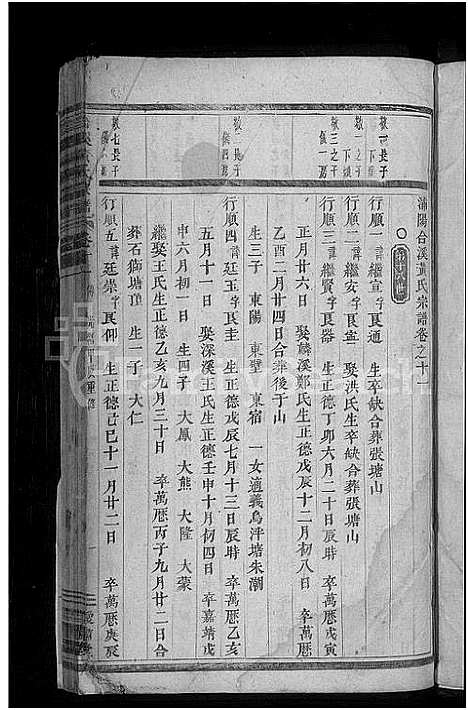 浦陽合溪黃氏宗譜卷之十一
行順一 諱繼宣字良通 生卒缺合葬張塘山
行順二 諱繼安字良寧 娶洪氏生卒缺合葬張塘山
行順三 諱繼賢字良器 生正德丁卯六月二十日辰時 卒萬歷戊寅
正月廿六日 娶麟溪鄭氏生正德戊辰十二月初八日 卒萬歷
乙酉二月廿四日合葬後于山
生三子 東陽 東壁 東宿 一女適義烏泮塘朱潮
行順四 諱廷玉字良圭 生正德戊辰七月十三日辰時 卒萬歷乙亥
五月十一日 娶深溪王氏生正德壬申十月初四日 卒嘉靖戊
申六月初一日 生四子 大鳳 大熊 大隆 大蒙
繼娶王氏生正德乙亥九月三十日 卒萬歷丙子九月廿二日合
葬石獅塘頂 生一子 大仁
行順五 諱廷崇字良仰 生正德己巳十一月廿二日 卒萬歷庚辰
敬一長子
下
敬一之子
下
敬三之子
儀一
敬長子
儀四
敬七長子